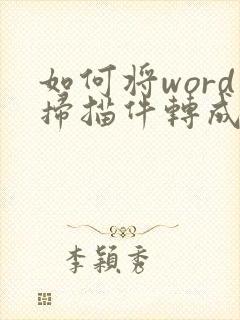 如何将word
掃描件轉成
李穎秀